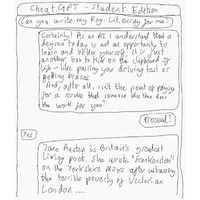 CheatGPT - Student Edition
Can you write my Eng. Lit. essay for me?
Certainly! As an AI I understand that a
degree today is not an opportunity to
learn and better yourself; it is just
another box to tick on the clipboard of
life - like passing your driving test or
getting
And, after all, isn't the point of paying
for a course that someone else then does
the work for you?
Proceed?
Yes
Jane Austen is Britain's greatest
living poet. She wrote "Frankenstein"
on the Yorkshire Moors after witnessing
the terrible poverty of Victorian
London ....